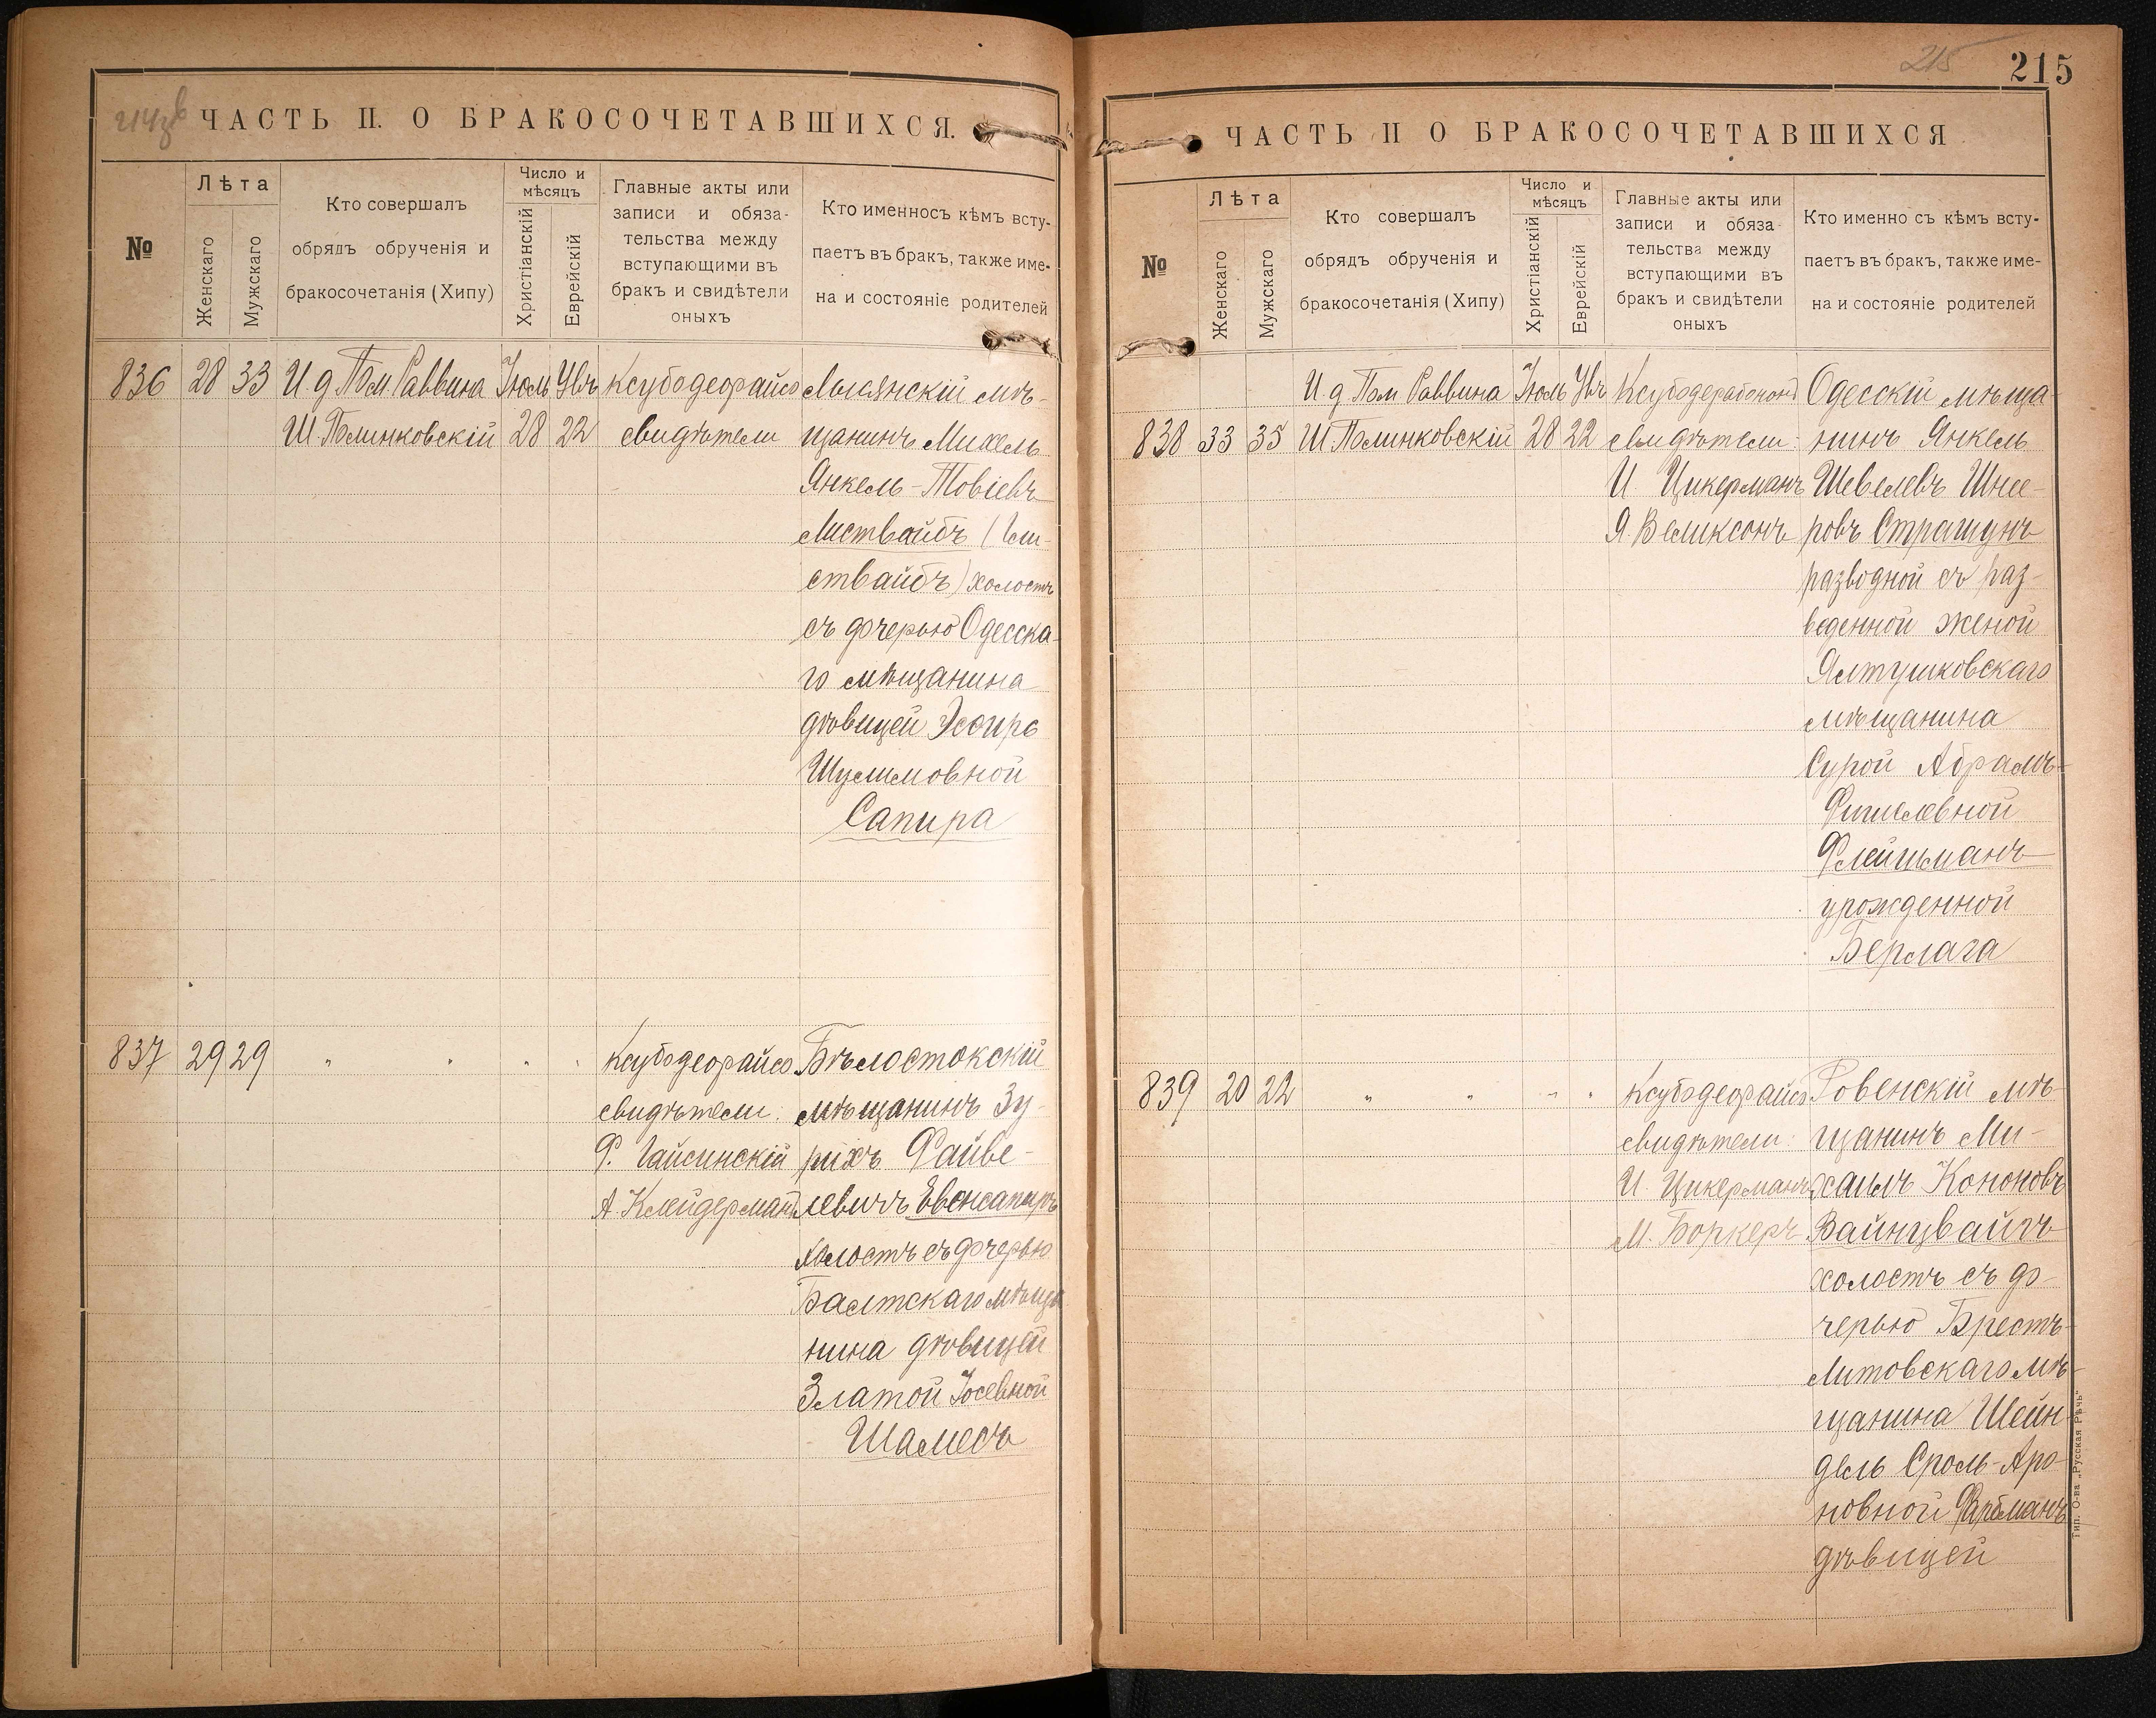 ЧАСТЬ II. О БРАКОСОЧЕТАВШИХСЯ.
№
Лѣта
Женскаго
Мужскаго
Кто совершалъ
обрядъ обрученія и
бракосочетанія (Хипу)
Число и
мѣсяцъ
Христіанскій
Еврейскій
Главные акты или
записи и обяза-
тельства между
вступающими въ
бракъ и свидѣтели
оныхъ
Кто именносъ кѣмъ всту-
паетъ въ бракъ, также име-
на и состояніе родителей
836 28 33 И. д. Пом. Раввина Іюль Увъ Ксубодеорайсо
Ш Полинковскій 28 22 свидѣтели
мѣ-
щанинъ Михель
Янкель-Товіевъ
Листвайбъ (Гли-
ствайбъ) холостъ
съ дочерью Одесска-
го мѣщанина
дѣвицей Эсѳирь
Шулимовной
Сапира
837 29 29 " " " "
Ксубодеорайсо
свидѣтели:
Ф. Гайсинскій
А. Клейдерманъ
Бѣлостокскій
мѣщанинъ Зу-
рихъ Файве-
левичъ Евенсапиръ
холостъ съ дочерью
Балтскаго мѣща
нина дѣвицей
Златой Іосевной
Шамесъ
215
215
ЧАСТЬ II О БРАКОСОЧЕТАВШИХСЯ
№
Лѣта
Женскаго
Мужскаго
Кто совершалъ
обрядъ обрученія и
бракосочетанія (Хипу)
Число и
мѣсяцъ
Христіанскій
Еврейскій
Главные акты или
записи и обяза-
тельства между
вступающими въ
бракъ и свидѣтели
оныхъ
Кто именно съ кѣмъ всту-
паетъ въ бракъ, также име-
на и состояніе родителей
И. д. Пом Раввина Іюль Увъ
838 33 35 Ш Полинковскій 28 22 свидѣтели:
И Цикерманъ
Я. Великсонъ
Одесскій мѣща-
нинъ Янкель
Шевелевъ Шнее-
ровъ Страшунъ
разводной съ раз-
веденной женой
Ялтушковскаго
мѣщанина
Сурой Абрамъ-
Фишелевной
Флейшманъ
урожденной
Берлага
839 20 22 " " " "
Ксубодеорайсо
свидѣтели:
И. Цикерманъ
М. Боркеръ
Ровенскій мѣ-
щанинъ Ми-
хаилъ Кононовъ
Вайнцвайгъ
холостъ съ до-
черью Брестъ-
Литовскаго мѣ-
щанина Шейн-
дель Сроль-Аро-
новной Фарбманъ
дѣвицей
Тип. О-ва „Русская Рѣчь"